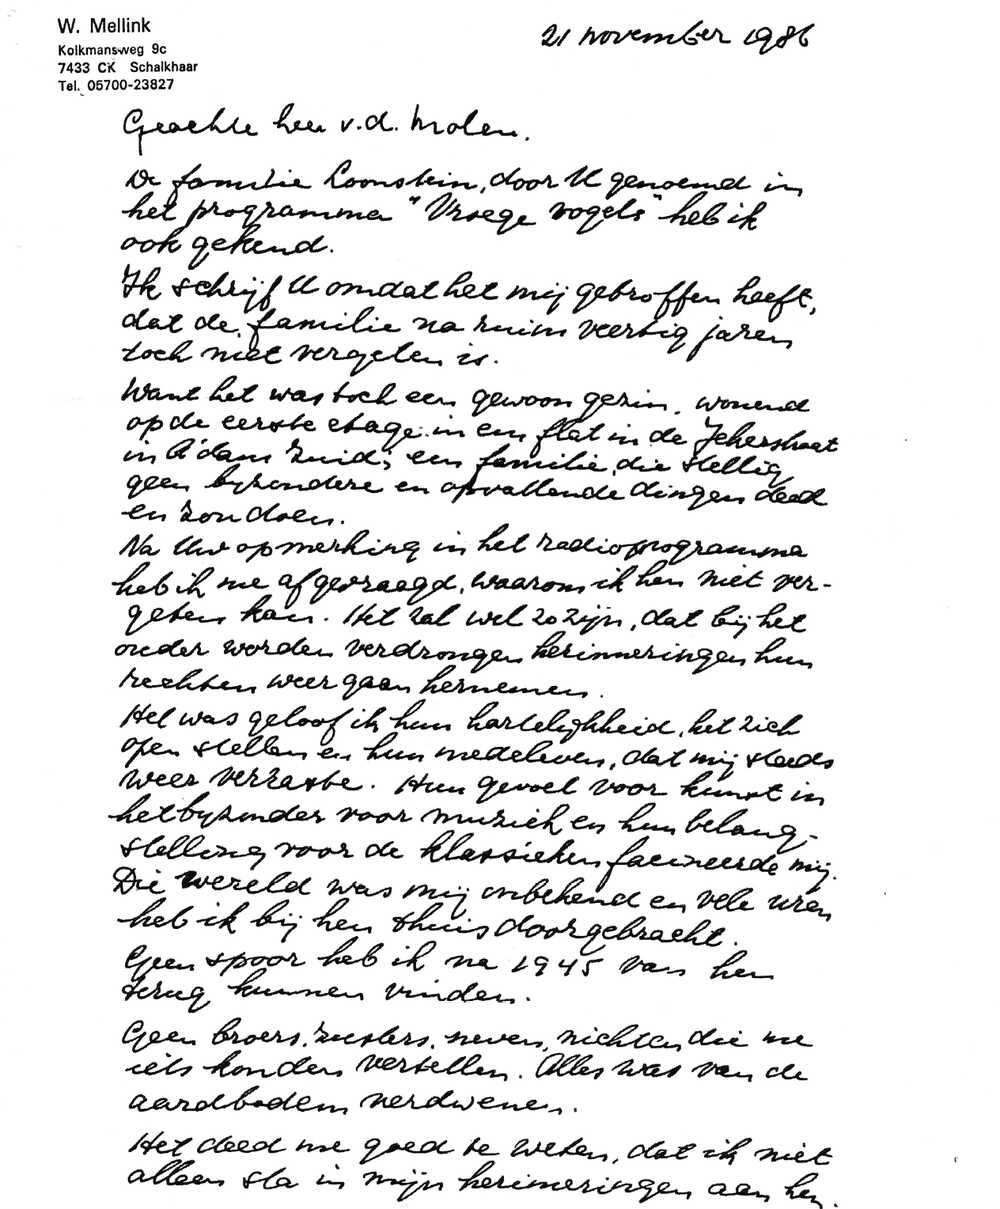 W. Mellink
Kolkmansweg 9c
7433 CK Schalkhaar
Tel. 05700-23827
21 november 1986
Geachte heer v.d. Molen.
De familie Loonstein, door U genoemd in
het programma "Vroege vogels" heb ik
ook gekend.
Ik schrijf U omdat het mij getroffen heeft,
dat de familie na ruim veertig jaren
toch niet vergeten is.
Want het was toch een gewoon gezin, wonend
op de eerste etage in een flat in de Jekerstraat
in A'dam Zuid; een familie, die stellig
geen byzondere en opvallende dingen deed
en zou doen.
Na Uw opmerking in het radioprogramma
heb ik me afgevraagd, waarom ik hen niet ver-
geten kan. Het zal wel zo zijn, dat bij het
ouder worden verdrongen herinneringen hun
rechten weer gaan hernemen.
Het was geloof ik hun hartelijkheid, het zich
open stellen en hun medeleven, dat mij steeds
weer verraste. Hun gevoel voor kunst in
het byzonder voor muziek en hun belang-
stelling voor de klassieken facineerde mij.
Die wereld was mij onbekend en vele uren
heb ik bij hen thuis doorgebracht.
Geen spoor heb ik na 1945 van hen
terug kunnen vinden.
Geen broers, zusters, neven, nichten die me
iets konden vertellen. Alles was van de
aardbodem verdwenen.
Het deed me goed te weten, dat ik niet
alleen sta in mijn herinneringen aan hen.